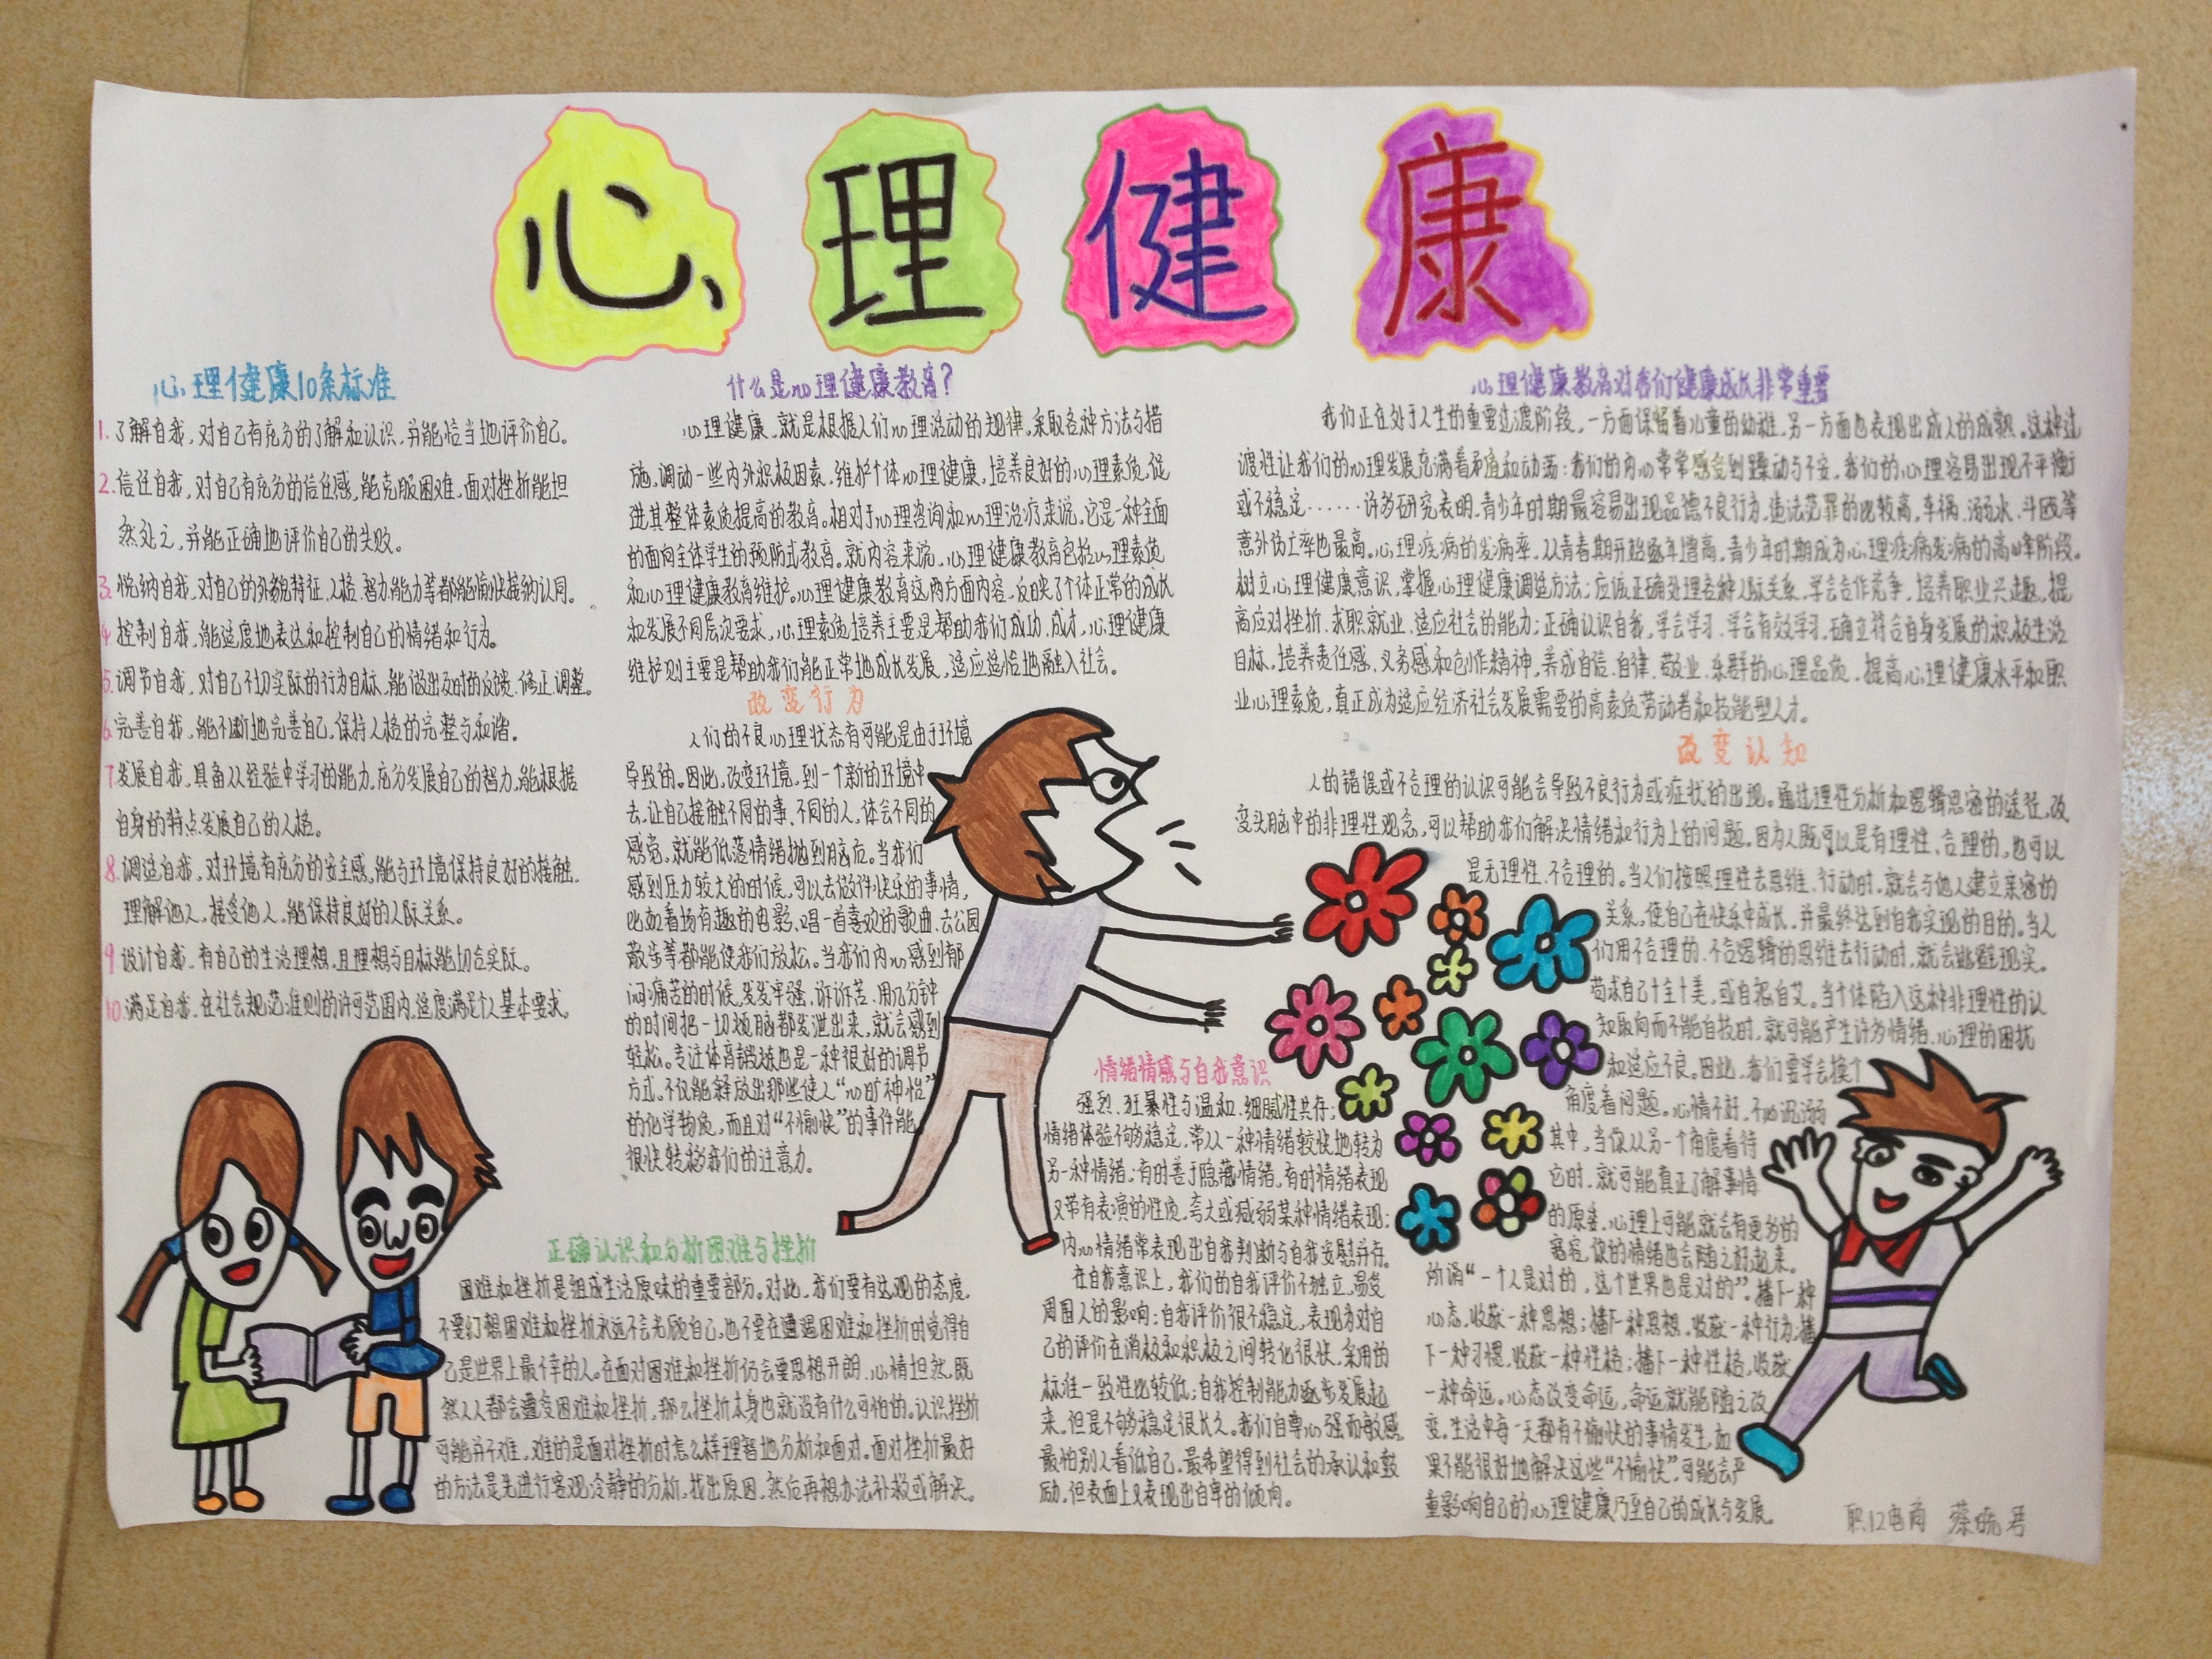 心理健康
心理健康10条标准
1.了解自我,对自己有充分的了解和认识,并能恰当地评价自己。
2.信任自我,对自己有充分的信任感,能克服困难,面对挫折能坦
然处之,并能正确地评价自己的失败。
3.悦纳自我,对自己的外貌特征、人格、智力、能力等都能愉快接纳认同。
4.控制自我,能适度地表达和控制自己的情绪和行为。
5.调节自我,对自己不切实际的行为目标、能做出及时的反馈、修正、调整。
6.完善自我,能不断地完善自己,保持人格的完整与和谐。
7.发展自我,具备从经验中学习的能力,充分发展自己的智力,能根据
自身的特点发展自己的人格。
8.调适自我,对环境有充分的安全感,能与环境保持良好的接触,
理解他人,接受他人,能保持良好的人际关系。
9.设计自我,有自己的生活理想,且理想与目标能切合实际。
10.满足自我,在社会规范准则的许可范围内,适度满足个人基本要求。
什么是心理健康教育?
心理健康,就是根据人们心理活动的规律,采取各种方法与措
施,调动一些内外积极因素,维护个体心理健康,培养良好的心理素质,促
进其整体素质提高的教育。相对于心理咨询和心理治疗来说,它是一种全面
的面向全体学生的预防式教育。就内容来说,心理健康教育包括心理素质
和心理健康教育维护。心理健康教育这两方面内容,反映了个体正常的成长
和发展不同层次要求,心理素质培养主要是帮助我们成功、成才,心理健康
维护则主要是帮助我们能正常地成长发展,适应适恰地融入社会。
改变行为
人们的不良心理状态有可能是由于环境
导致的。因此,改变环境,到一个新的环境中
去,让自己接触不同的事、不同的人,体会不同的
感觉,就能低落情绪抛到脑后。当我们
感到压力较大的时候,可以去做件快乐的事情,
比如看场有趣的电影、唱一首喜欢的歌曲、去公园
散步等都能使我们放松。当我们内心感到郁
闷痛苦的时候,发发牢骚、诉诉苦,用几分钟
的时间把一切烦脑都发泄出来,就会感到
轻松。专注体育锻炼也是一种很好的调节
方式,不仅能释放出那些使人“心旷神怡”
的化学物质,而且对“不愉快”的事件能
很快转移我们的注意力。
正确认识和分析困难与挫折
困难和挫折是组成生活原味的重要部分。对此,我们要有达观的态度,
不要幻想困难和挫折永远不会光顾自己,也不要在遭遇困难和挫折时觉得自
己是世界上最不幸的人。在面对困难和挫折仍会要思想开朗、心情坦然,既
然人人都会遭受困难和挫折,那么挫折本身也就没有什么可怕的。认识挫折
可能并不难,难的是面对挫折时怎么样理智地分析和面对。面对挫折最好
的方法是先进行客观冷静的分析,找出原因,然后再想办法补救或解决。
情绪情感与自我意识
强烈、狂暴性与温和、细腻性共存;
情绪体验不够稳定,常从一种情绪较快地转为
另一种情绪;有时善于隐藏情绪,有时情绪表现
又带有表演的性质,夸大或减弱某种情绪表现;
内心情绪常表现出自我判断与自我安慰并存。
在自我意识上,我们的自我评价不独立,易受
周围人的影响;自我评价很不稳定,表现为对自
己的评价在消极和积极之间转化很快,采用的
标准一致性比较低;自我控制能力逐步发展起
来,但是不够稳定很长久。我们自尊心强而敏感,
最怕别人看低自己,最希望得到社会的承认和鼓
励,但表面上又表现出自卑的倾向。
心理健康教育对我们健康成长非常重要
我们正在处于人生的重要过渡阶段,一方面保留着儿童的幼稚,另一方面也表现出成人的成熟。这种过
渡性让我们的心理发展充满着矛盾和动荡:我们的内心常常感觉到躁动与不安,我们的心理容易出现不平衡
或不稳定……许多研究表明,青少年时期最容易出现品德不良行为,违法犯罪的比较高,车祸、溺水、斗殴等
意外伤亡率也最高。心理疾病的发病率,从青春期开始逐年增高,青少年时期成为心理疾病发病的高峰阶段。
树立心理健康意识,掌握心理健康调适方法;应该正确处理各种人际关系,学会合作竞争,培养职业兴趣,提
高应对挫折、求职就业、适应社会的能力;正确认识自我,学会学习、学会有效学习,确立符合自身发展的积极生活
目标,培养责任感、义务感和创作精神,养成自信、自律、敬业、乐群的心理品质,提高心理健康水平和职
业心理素质,真正成为适应经济社会发展需要的高素质劳动者和技能型人才。
改变认知
人的错误或不合理的认识可能会导致不良行为或症状的出现。通过理性分析和逻辑思维的途径,改
变头脑中的非理性观念,可以帮助我们解决情绪和行为上的问题。因为人既可以是有理性、合理的,也可以
是无理性、不合理的。当人们按照理性去思维、行动时,就会与他人建立亲密的
关系,使自己在快乐中成长,并最终达到自我实现的目的。当人
们用不合理的、不合逻辑的思维去行动时,就会逃避现实。
苟求自己十全十美,或自怨自艾。当个体陷入这种非理性的认
知取向而不能自拔时,就可能产生许多情绪、心理的困扰
和适应不良。因此,我们要学会换个
角度看问题。心情不好,不必沉溺
其中,当你从另一个角度看待
它时,就可能真正了解事情
的原委,心理上可能就会有更多的
宽容,你的情绪也会随之好起来。
所谓“一个人是对的,这个世界也是对的”。播下一种
心态,收获一种思想;播下一种思想,收获一种行为;播
下一种习惯,收获一种性格;播下一种性格,收获
一种命运。心态改变命运,命运就能随之改
变。生活中每一天都有不愉快的事情发生,如
果不能很好地解决这些“不愉快”,可能会严
重影响自己的心理健康乃至自己的成长与发展。
职12电商 蔡晓君